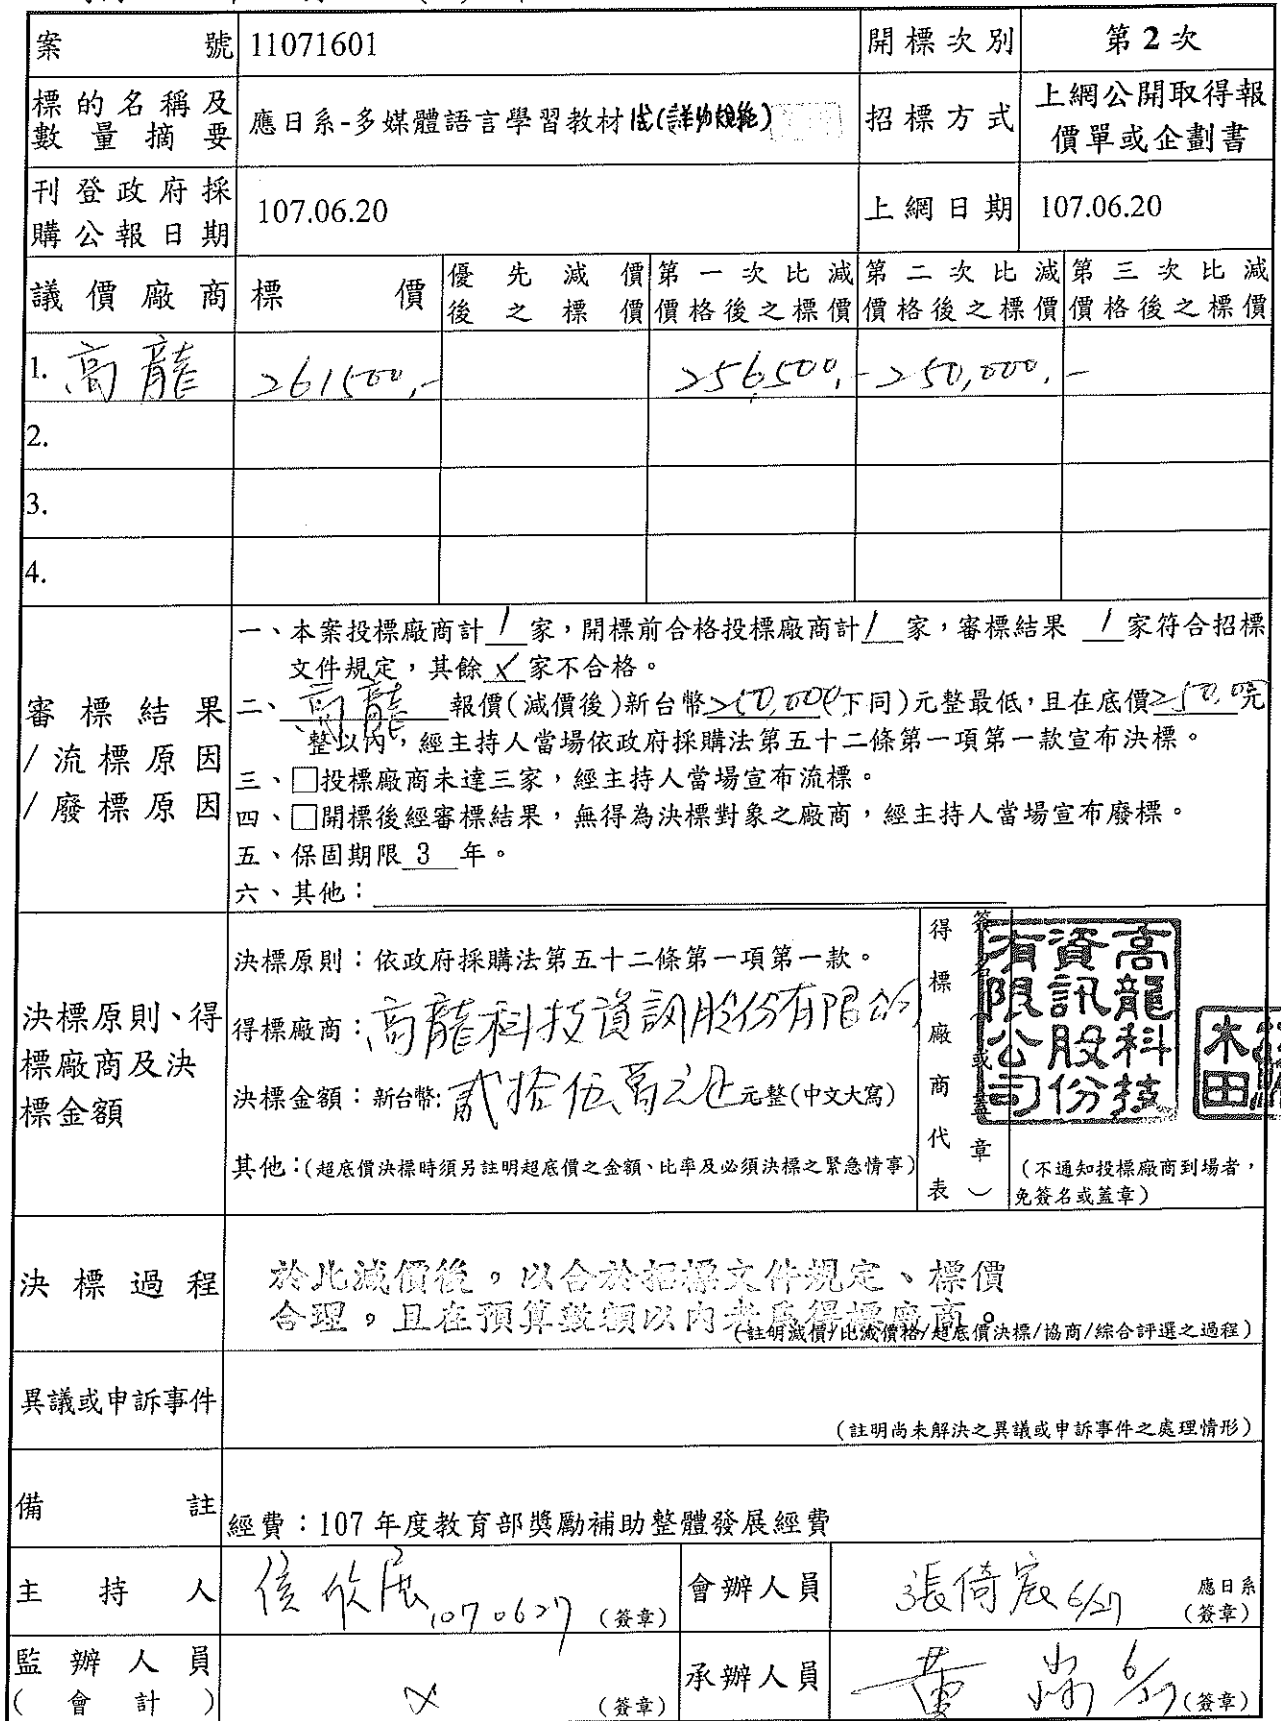 案號 11071601 開標次別 第2次
標的名稱及數量摘要 應日系-多媒體語言學習教材 招標方式 上網公開取得報價單或企劃書
刊登政府採購公報日期 107.06.20 上網日期 107.06.20
議價廠商 標價 優先減價後之標價 第一次比減價格後之標價 第二次比減價格後之標價 第三次比減價格後之標價
1. 高龍 261500,- 256,500,- 250,000,-
2.
3.
4.
審標結果/流標原因/廢標原因
一、本案投標廠商計 1 家,開標前合格投標廠商計 1 家,審標結果 1 家符合招標
文件規定,其餘 X 家不合格。
二、高龍 報價(減價後)新台幣250,000(下同)元整最低,且在底價
整以內,經主持人當場依政府採購法第五十二條第一項第一款宣布決標。
三、□投標廠商未達三家,經主持人當場宣布流標。
四、□開標後經審標結果,無得為決標對象之廠商,經主持人當場宣布廢標。
五、保固期限 3 年。
六、其他:
決標原則、得標廠商及決標金額
決標原則:依政府採購法第五十二條第一項第一款。
得標廠商:高龍科技資訊股份有限公司
決標金額:新台幣:貳拾伍萬元正元整(中文大寫)
其他:(超底價決標時須另註明超底價之金額、比率及必須決標之緊急情事)
得標廠商代表
(簽名或蓋章)
高龍科技資訊股份有限公司
(不通知投標廠商到場者,
免簽名或蓋章)
決標過程
於比減價後。以合於招標文件規定、標價
合理。且在預算數額以內者為得標廠商。
(註明減價/比減價格/超底價決標/協商/綜合評選之過程)
異議或申訴事件
(註明尚未解決之異議或申訴事件之處理情形)
備註 經費:107 年度教育部獎勵補助整體發展經費
主持人 1070627 (簽章) 會辦人員 張倚宸 6/27 應日系 (簽章)
監辦人員(會計) X (簽章) 承辦人員 黃 6/27 (簽章)